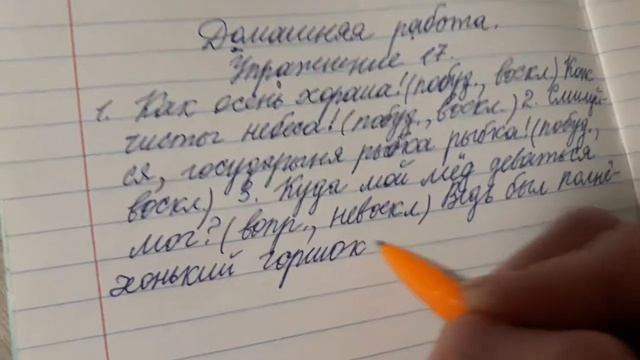 Домашняя работа.
Упражнение 17.
1. Как осень хороша! (побуд., воскл) Как
чисты небеса! (побуд., воскл) 2. Смилуй-
ся, государыня рыбка рыбка! (побуд.,
воскл) 3. Куда мой мёд деваться
мог? (вопр., невоскл) Ведь был полнё-
хонький горшок